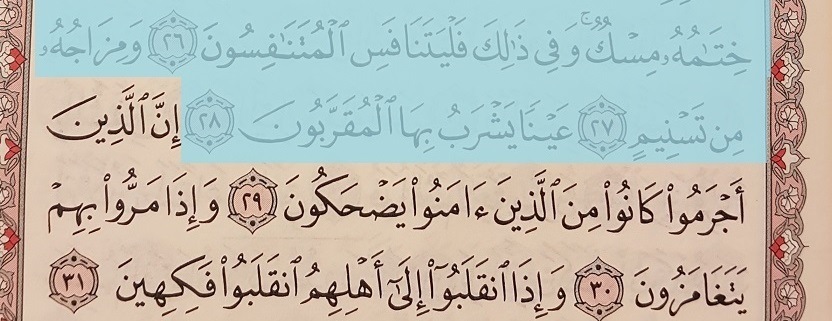 خِتَٰمُهُۥ مِسْكٌ ۚ وَفِى ذَٰلِكَ فَلْيَتَنَافَسِ ٱلْمُتَنَٰفِسُونَ ٢٦ وَمِزَاجُهُۥ
مِن تَسْنِيمٍ ٢٧ عَيْنًا يَشْرَبُ بِهَا ٱلْمُقَرَّبُونَ ٢٨ إِنَّ ٱلَّذِينَ
أَجْرَمُوا۟ كَانُوا۟ مِنَ ٱلَّذِينَ ءَامَنُوا۟ يَضْحَكُونَ ٢٩ وَإِذَا مَرُّوا۟ بِهِمْ
يَتَغَامَزُونَ ٣٠ وَإِذَا ٱنقَلَبُوٓا۟ إِلَىٰٓ أَهْلِهِمُ ٱنقَلَبُوا۟ فَكِهِينَ ٣١